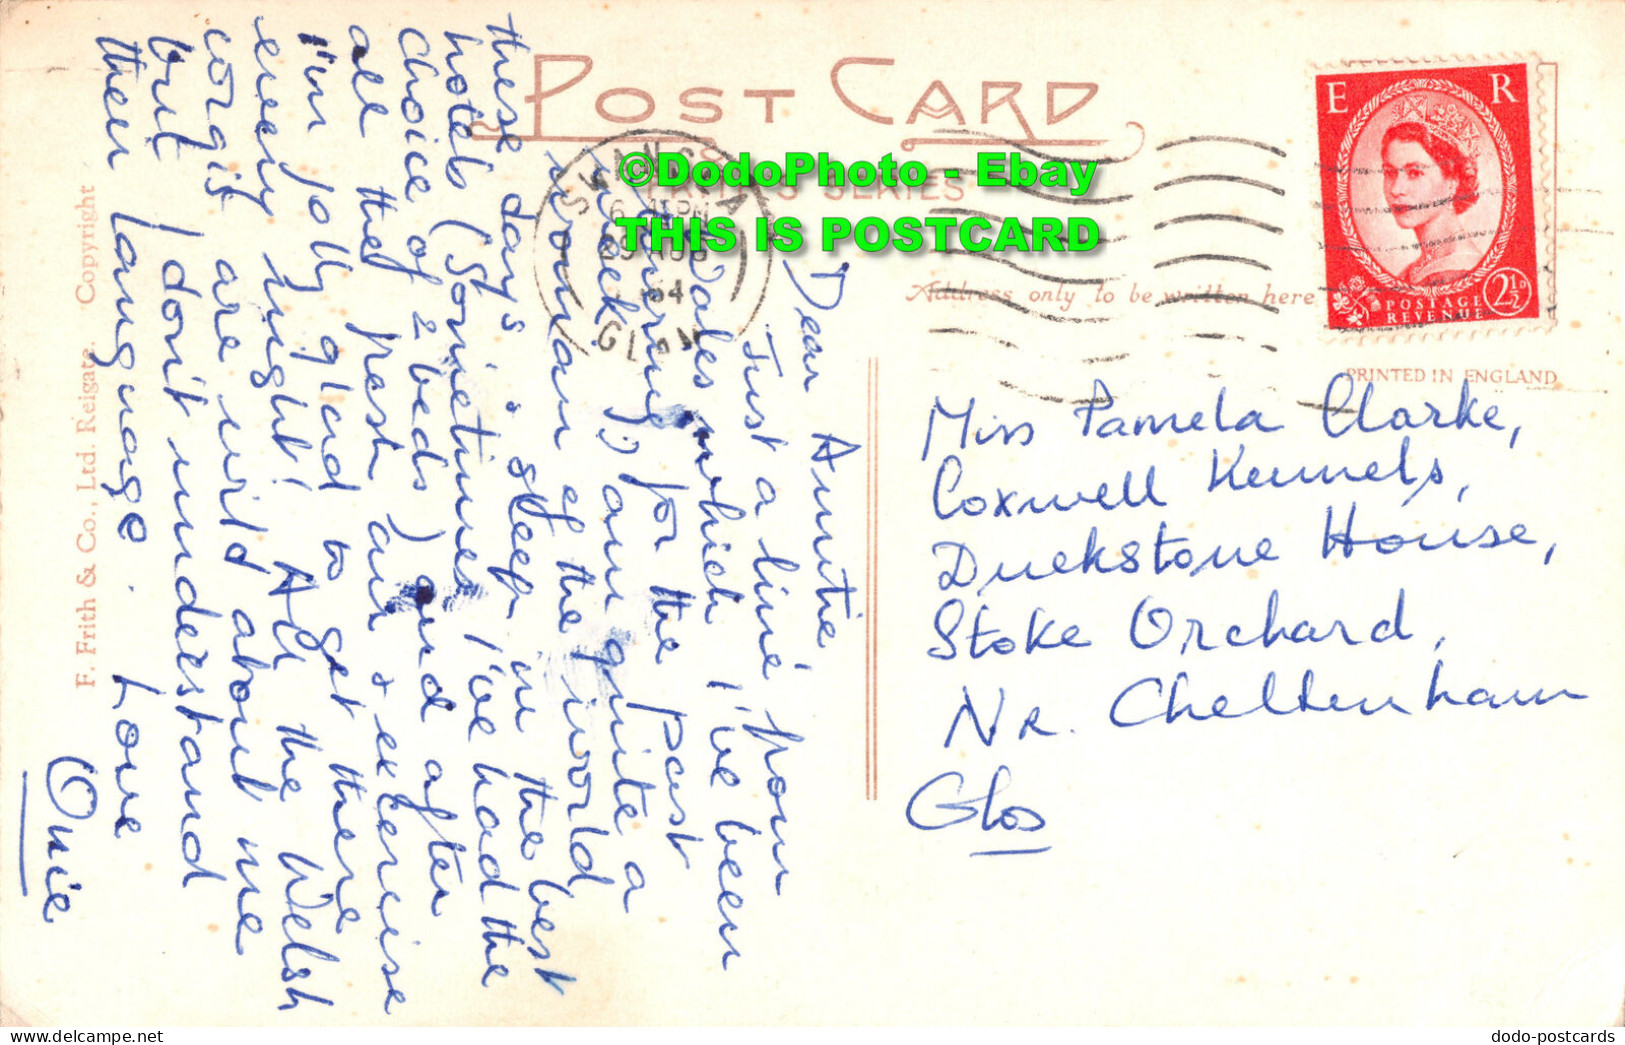 POST CARD
©DodoPhoto - Ebay
THIS IS POSTCARD
SERIES
Address only to be written here
PRINTED IN ENGLAND
E R
POSTAGE
REVENUE
2½D
SWANSEA
GLAM
Dear Auntie
Just a line from
Wales which I've been
touring for the past
week, am quite a
woman of the world
these days & sleep in the best
hotels (sometimes I've had the
choice of 2 beds) and after
all the fresh air & exercise
I'm jolly glad to get there
every night! All the Welsh
corgis are wild about me
but I don't understand
their language. Love
Ouie
Miss Pamela Clarke,
Coxwell Kennels,
Duckstone House,
Stoke Orchard,
Nr. Cheltenham
Glos
F. Frith & Co., Ltd. Reigate. Copyright
dodo-postcards